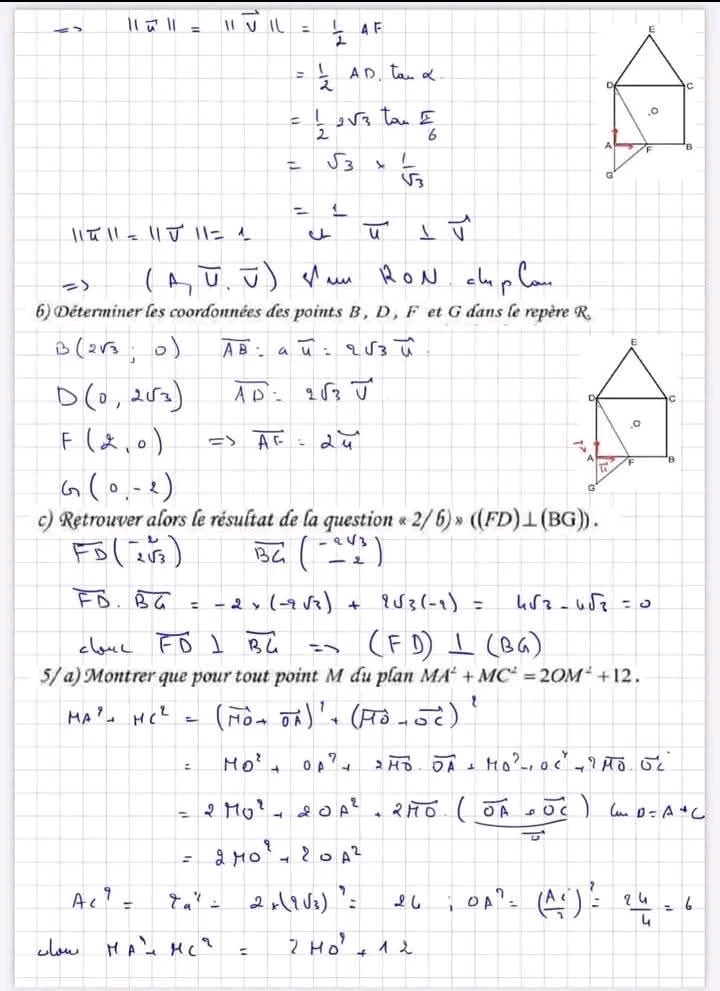 => ||u|| = ||v|| = 1/2 AF
= 1/2 AD. tan α.
= 1/2 2√3 tan π/6
= √3 × 1/√3
= 1
||u|| = ||v|| = 1 et u ⊥ v
=> (A, u, v) est un RON du plan
6) Déterminer les coordonnées des points B, D, F et G dans le repère R.
B(2√3; 0) AB = a u = 2√3 u.
D(0, 2√3) AD = 2√3 v
F(2, 0) => AF = 2u
G(0, -2)
c) Retrouver alors le résultat de la question « 2/ 6) » ((FD)⊥(BG)).
FD(-2 2√3) BG(-2√3 -2)
FD. BG = -2×(-2√3) + 2√3(-2) = 4√3 - 4√3 = 0
donc FD ⊥ BG => (FD) ⊥ (BG)
5/ a) Montrer que pour tout point M du plan MA² + MC² = 2OM² + 12.
MA² + MC² = (MO + OA)² + (MO + OC)²
= MO² + OA² + 2MO. OA + MO² + OC² + 2MO. OC
= 2MO² + 2OA² + 2MO. (OA + OC) car O = A * C
o
= 2MO² + 2OA²
AC² = 2a² = 2×(2√3)² = 24 ; OA² = (AC/2)² = 24/4 = 6
donc MA² + MC² = 2MO² + 12
E
D
C
O
A
F
B
G
E
D
C
O
v
A
u
F
B
G